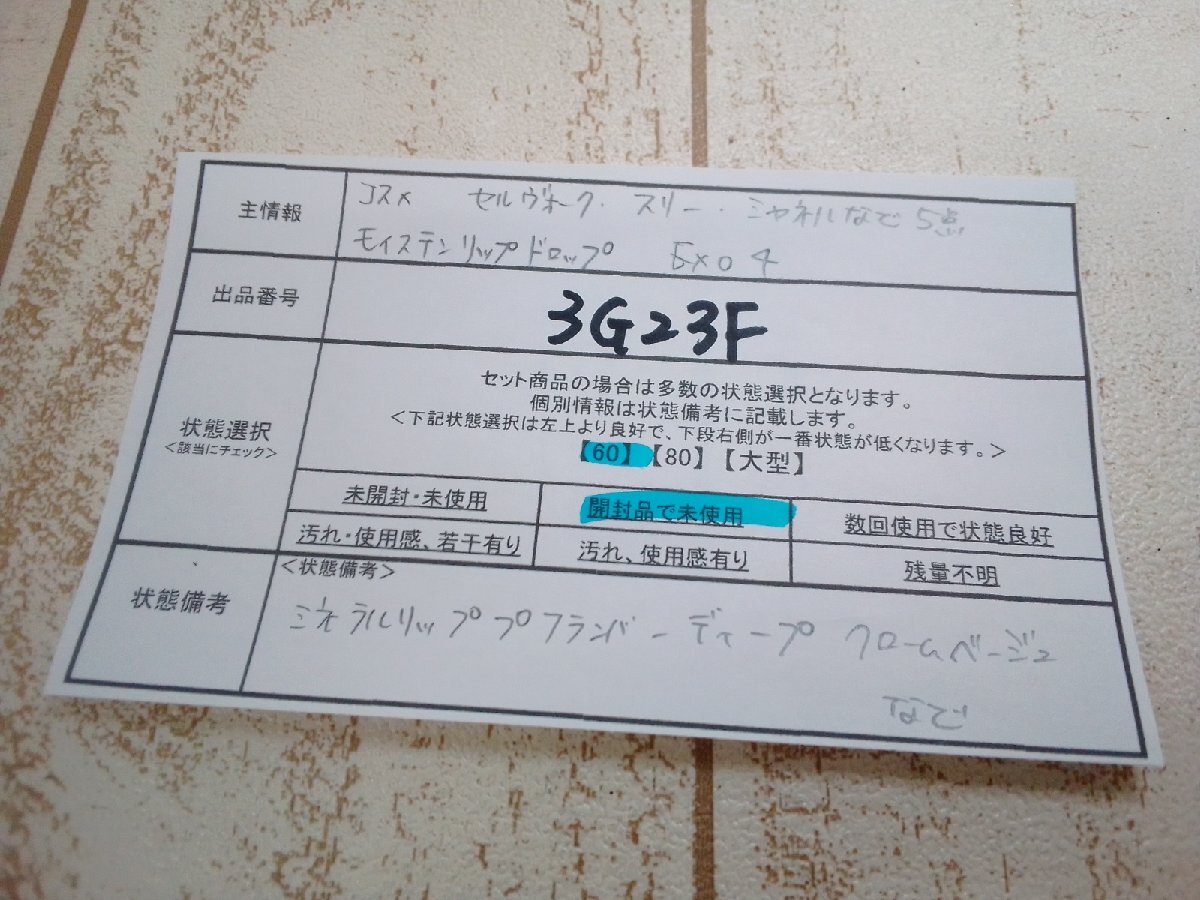 主情報
コスメ セルヴォーク・スリー・ミャネルなど5点
モイステンリップドロップ EX04
出品番号
3G23F
状態選択
<該当にチェック>
セット商品の場合は多数の状態選択となります。
個別情報は状態備考に記載します。
<下記状態選択は左上より良好で、下段右側が一番状態が低くなります。>
【60】【80】【大型】
未開封・未使用 開封品で未使用 数回使用で状態良好
汚れ・使用感、若干有り 汚れ、使用感有り 残量不明
状態備考
<状態備考>
ミネラルリップ ディープ クロームベージュ
など